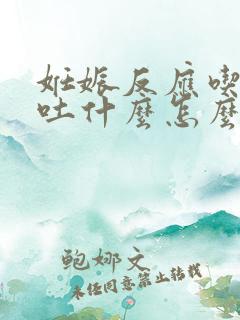 妊娠反應喫
吐什麼怎麼
鲍娜文
未经同意禁止转载